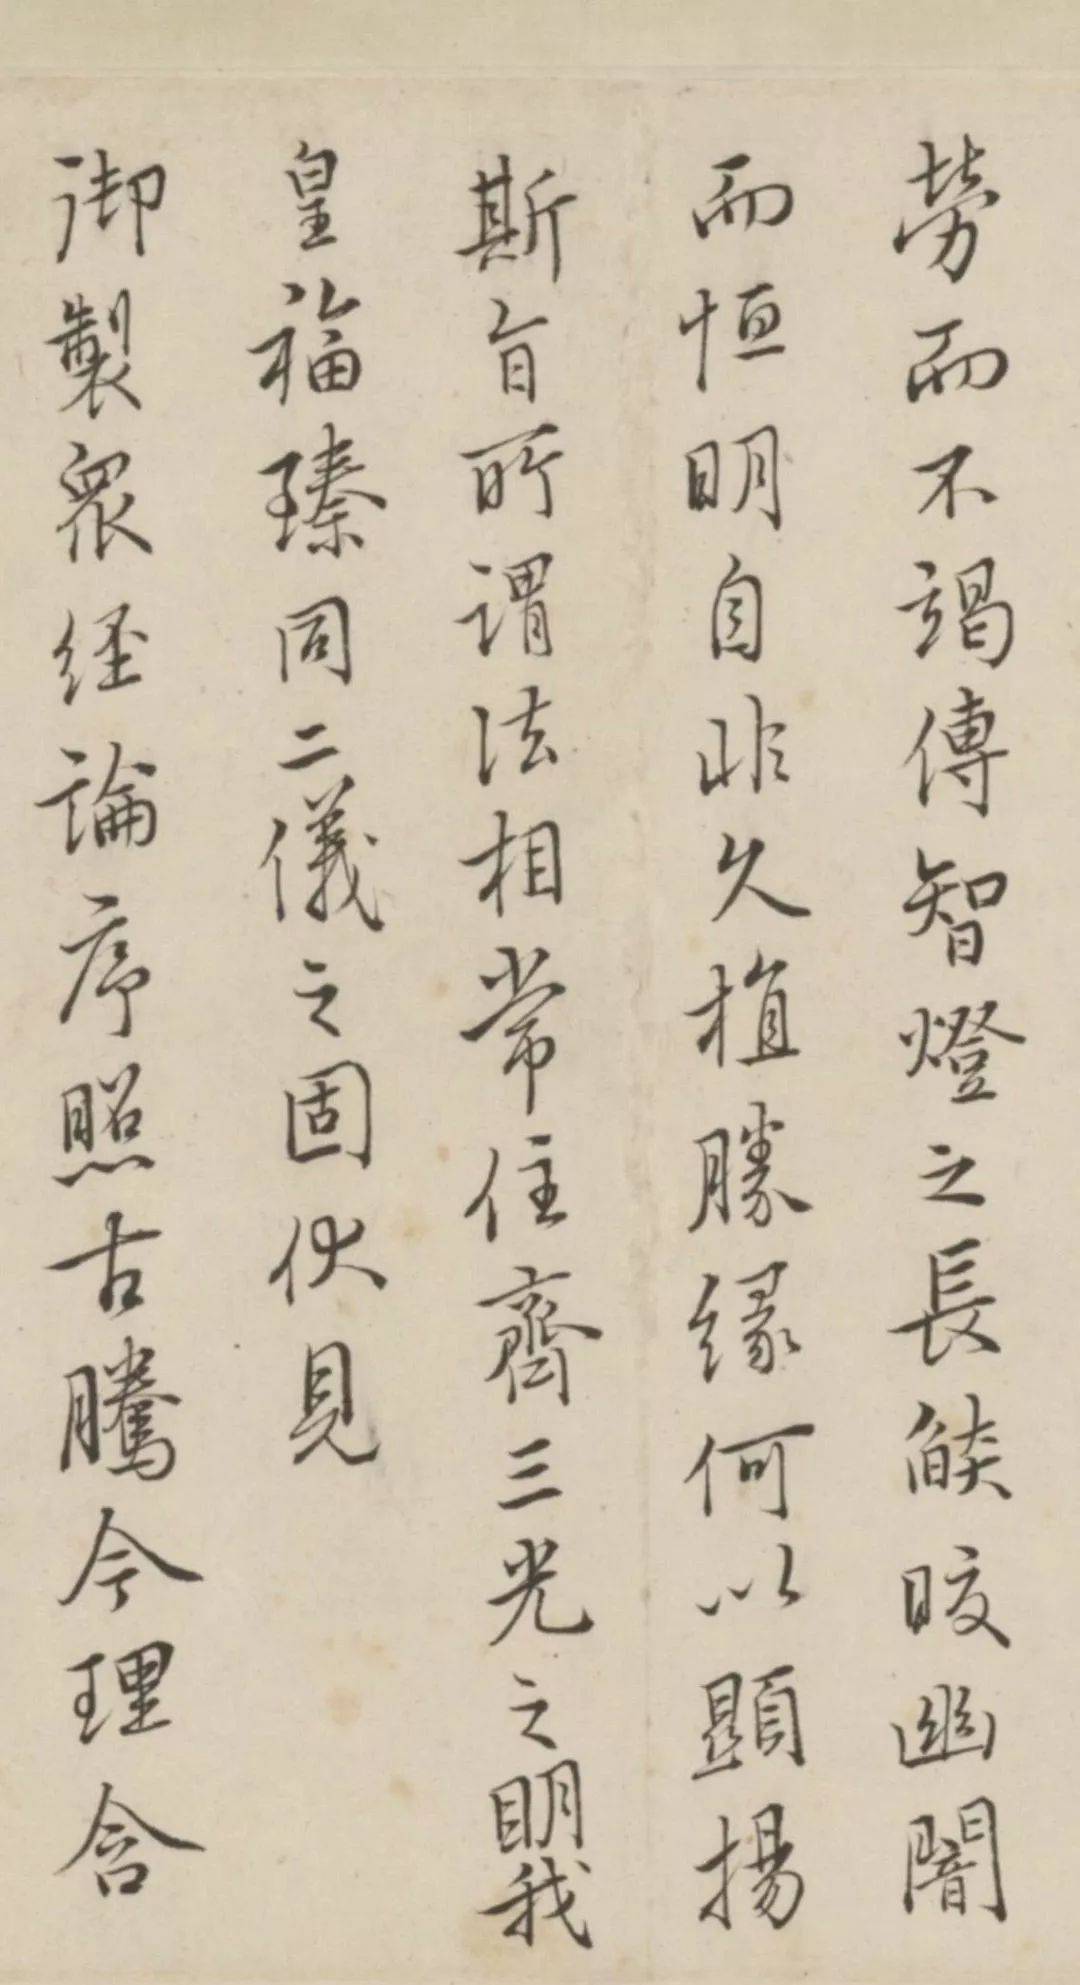 勞而不竭傳智燈之長燄皎幽闇
而恒明自非久植勝緣何以顯揚
斯旨所謂法相常住齊三光之明我
皇福臻同二儀之固伏見
御製眾經論序照古騰今理含